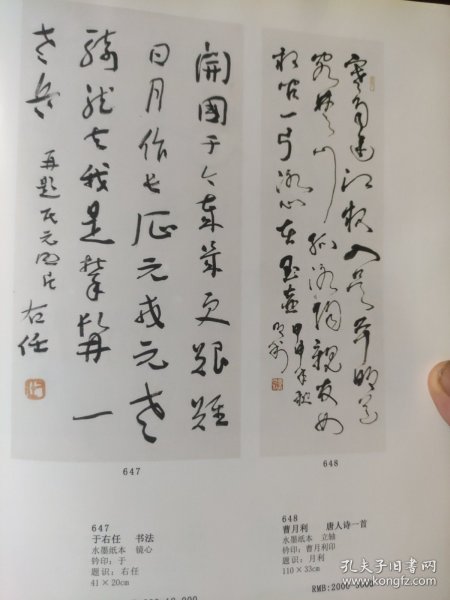 開國于今歲幾更艱難
日月作長征元戎元老
騎龍去我是攀髯一
老兵
再題民元照片
右任
寒雨連江夜入吳平明送
客楚山孤洛陽親友如
相問一片冰心在玉壺
甲申年秋
月利
647
648
647
于右任 书法
水墨纸本 镜心
钤印：于
题识：右任
41×20cm
648
曹月利 唐人诗一首
水墨纸本 立轴
钤印：曹月利印
题识：月利
110×33cm
RMB:2000-3000
孔夫子旧书网